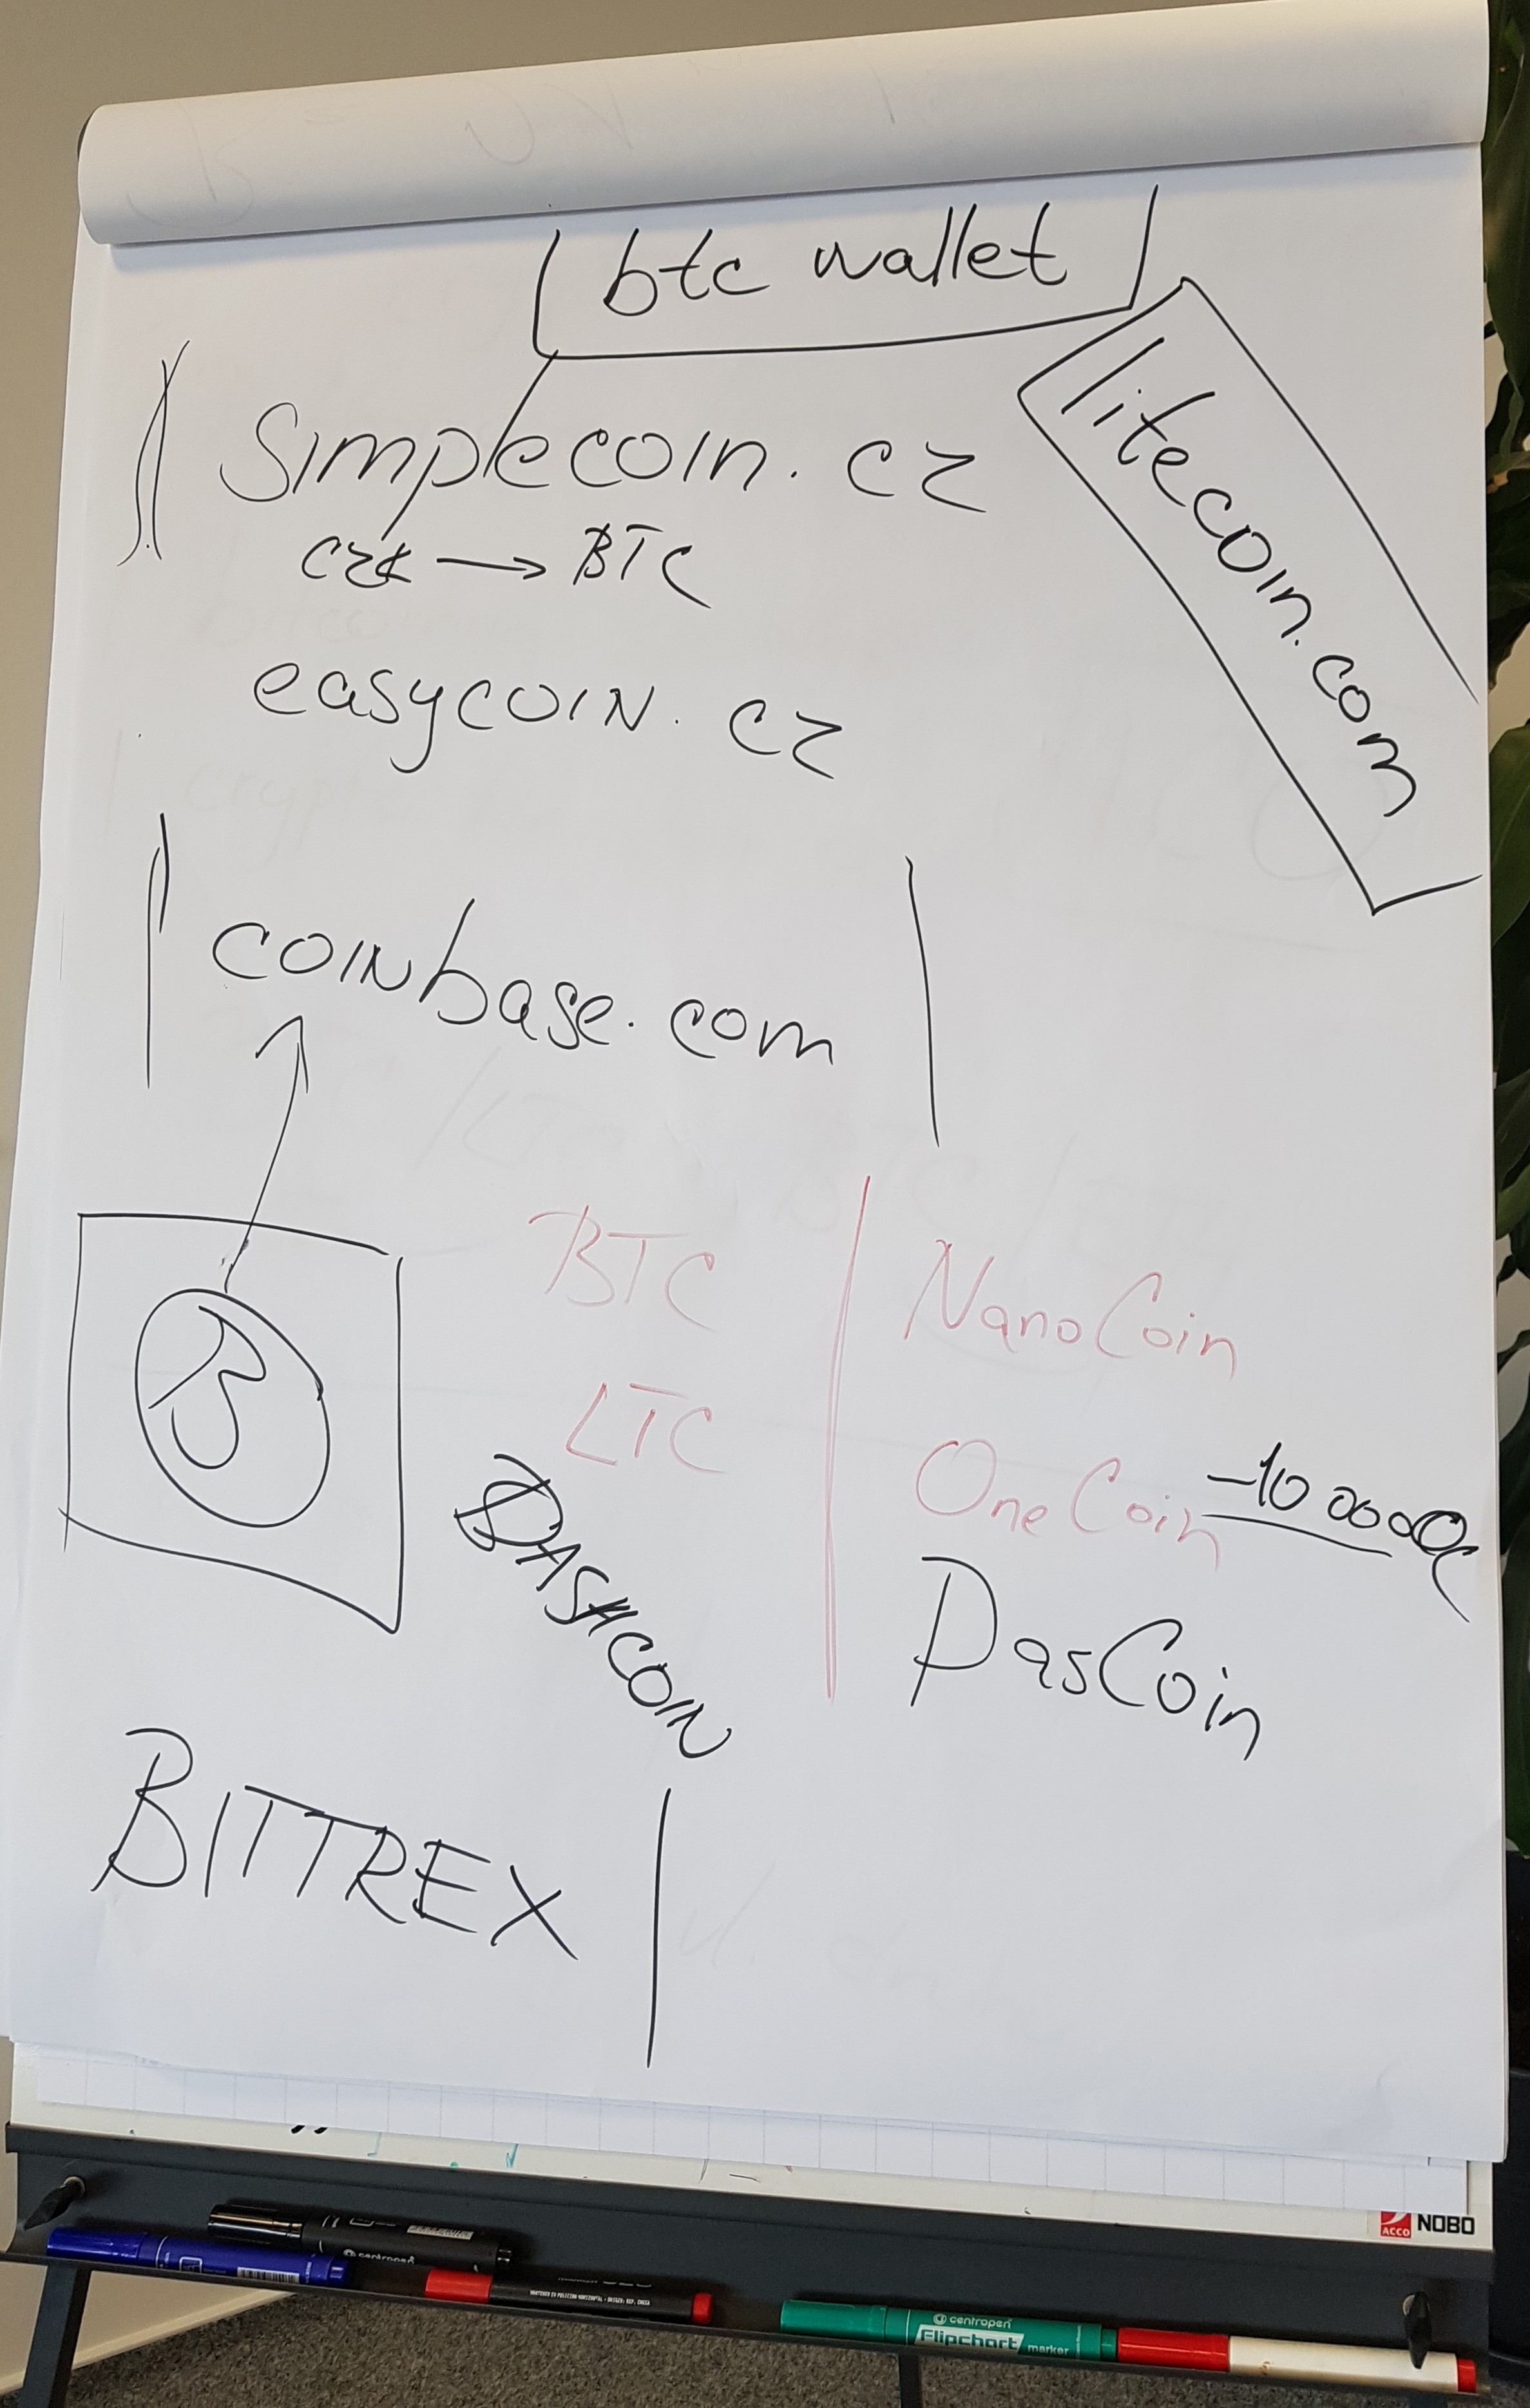 btc wallet
litecoin.com
simplecoin.cz
CZK → BTC
easycoin.cz
coinbase.com
B
BTC
LTC
DASHCOIN
NanoCoin
OneCoin
DasCoin
BITTREX
ACCO NOBO
centropen
centropen
Flipchart marker